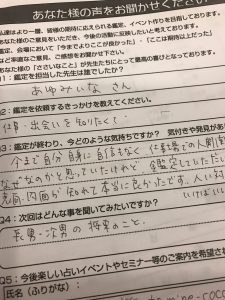 あなた様の声をお聞かせください
私達はより一層、皆様の期待に応えられる鑑定、イベント作りを目指しております。
鑑定、会場において「今までよりここが良かった」「ここは期待以上だった」
など率直なご意見、ご感想をお聞かせ下さい。
あなた様の「ささいなこと」が先生たちにとって最高の喜びとなっております。
Q1：鑑定を担当した先生は誰でしたか？
あゆみいな さん
Q2：鑑定を依頼するきっかけを教えてください。
仕事、出会いを知りたくて
Q3：鑑定が終わり、今どのような気持ちですか？ 気付きや発見があ
今まで自分自身に自信もなく 仕事場での人間関
なぜ なのかと思っていたけれど 鑑定していただい
内面が知れて本当に良かったです。人に対
いければいい
Q4：次回はどんな事を聞いてみたいですか？
長男・次男の将来のこと。
Q5：今後楽しい占いイベントやセミナー等のご案内を希望さ
氏名（ふりがな）：